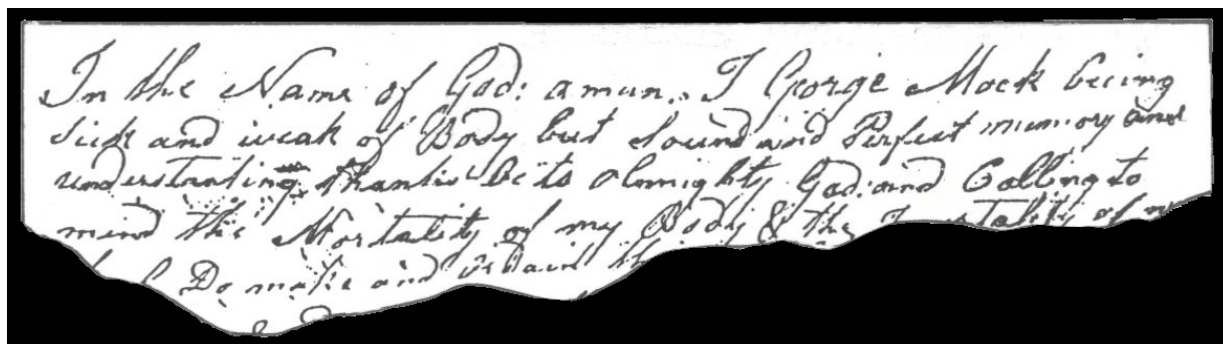 In the Name of God: amun. I George Mock being
Sick and weak of Body but Sound and Perfect mumory and
understanting thanks be to Almighty God: and Calling to
mind the Mortality of my Body & the
Do make and ordain